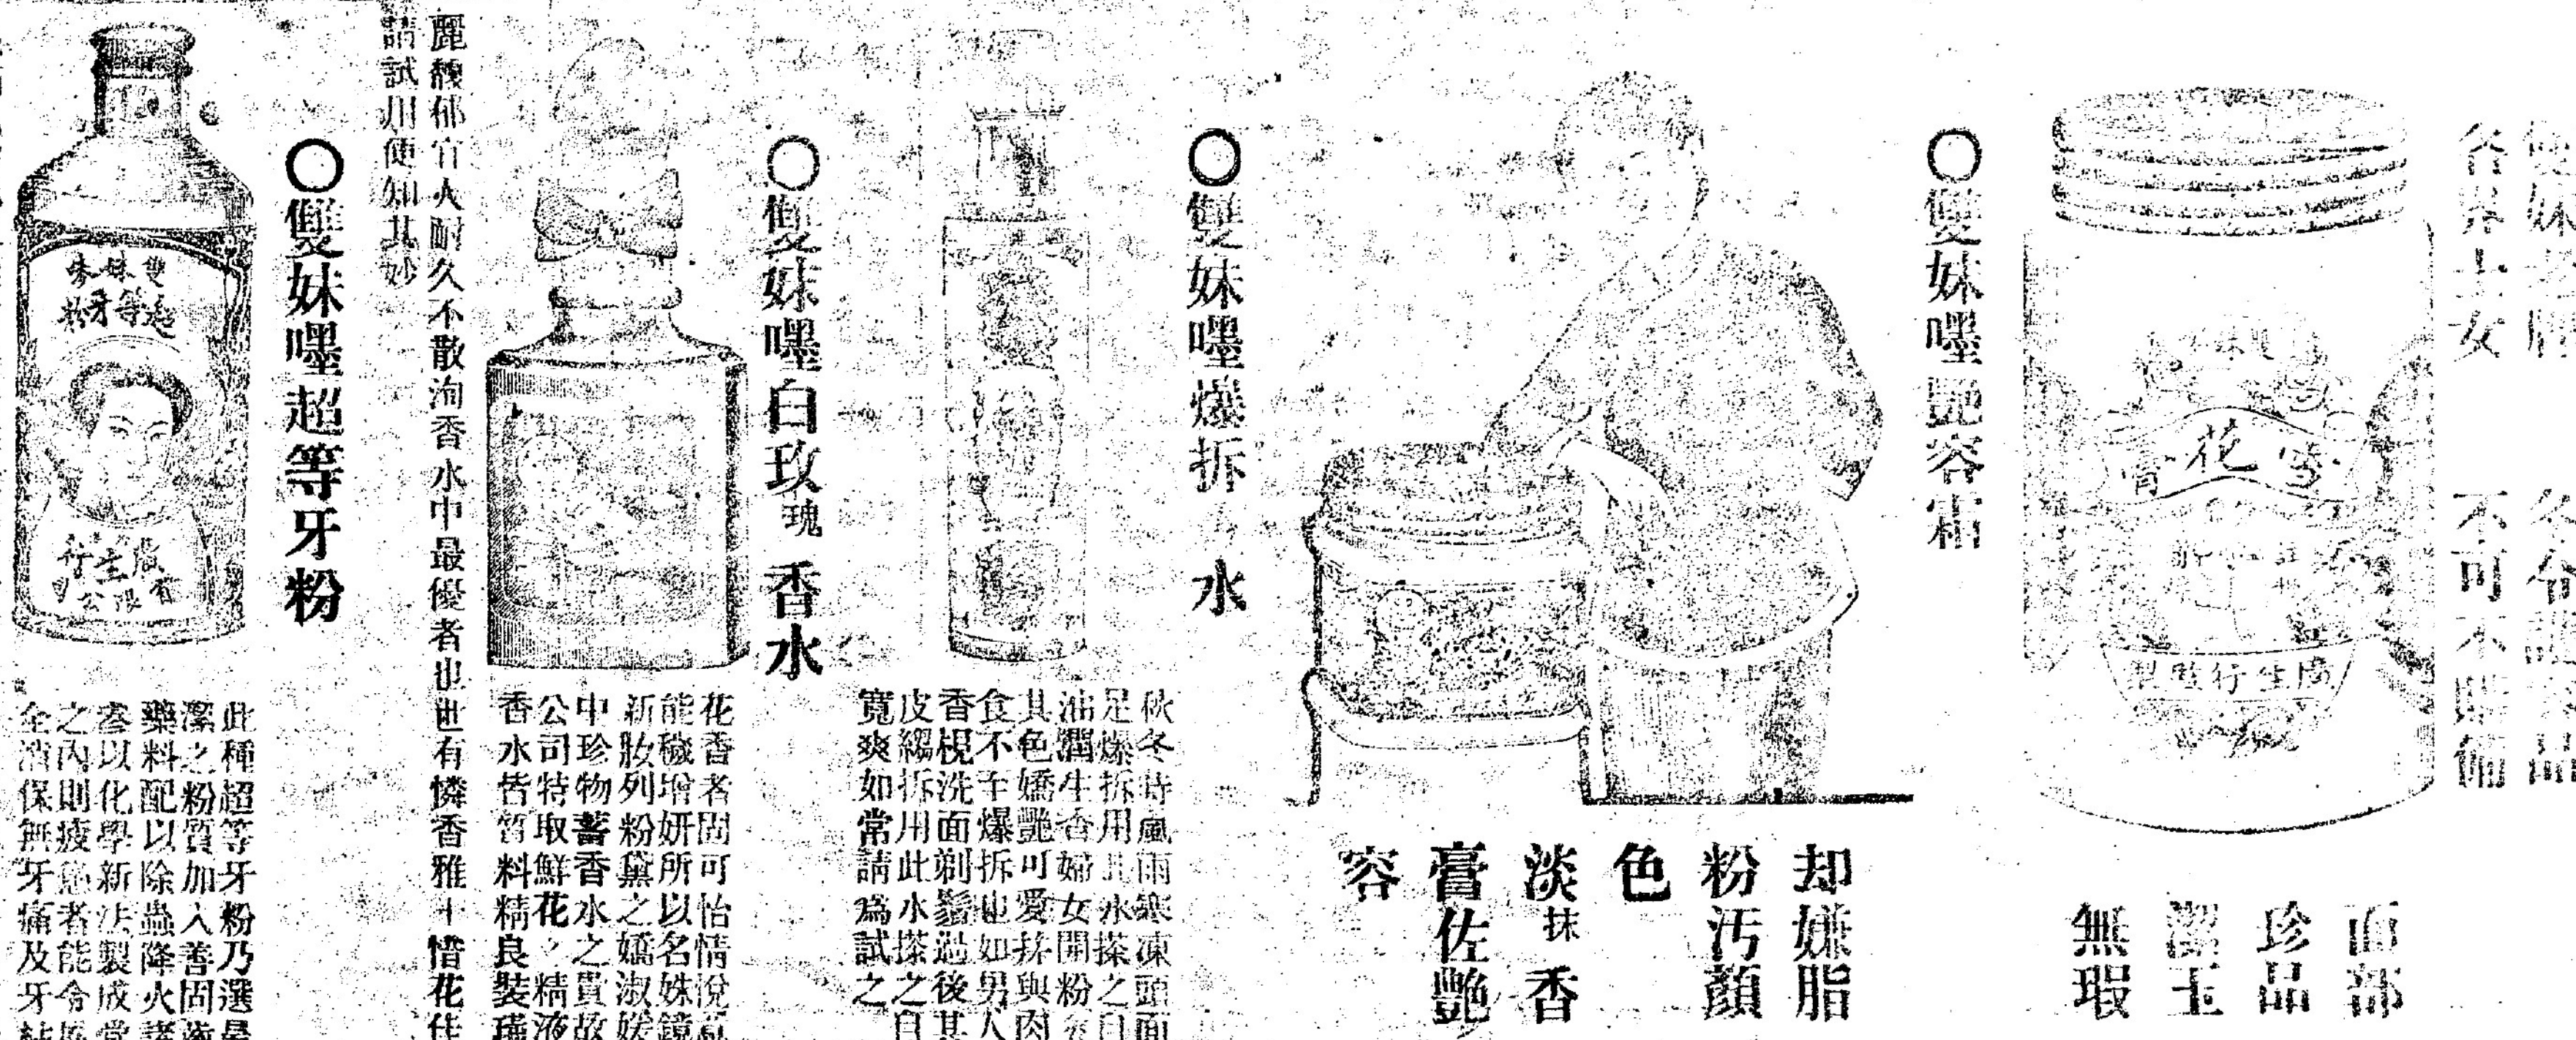 雙妹老牌
冬令
品
各界士女
不可不
備
雪花膏
廣生行監製
面部
珍品
潔玉
無瑕
〇雙妹嚜艷容霜
却嫌脂
粉汚顏
色
淡抹香
膏佐艷
容
〇雙妹嚜爆拆水
秋冬時風雨寒凍頭面
足爆拆用此水搽之自
油潤生香婦女開粉
其色嬌艷可愛并與肉
食不至爆拆也如男人
香梘洗面剃鬚過後其
皮縐拆用此水搽之自
寬爽如常請爲試之
〇雙妹嚜白玫瑰香水
花香者固可怡情悅
能穢增妍所以名姝鏡
新妝列粉黛之嬌淑媛
中珍物蓄香水之貴故
公司特取鮮花之精液
香水皆質料精良裝璜
麗馥郁宜人耐久不散洵香水中最優者也世有憐香雅士惜花佳
請試用便知其妙
〇雙妹嚜超等牙粉
雙妹嚜
超等牙粉
廣生行
有限公司
此種超等牙粉乃選最
潔之粉質加入善固齒
藥料配以除蟲降火諸
以化學新法製成常
之內則疲者能令
全消保無牙痛及牙